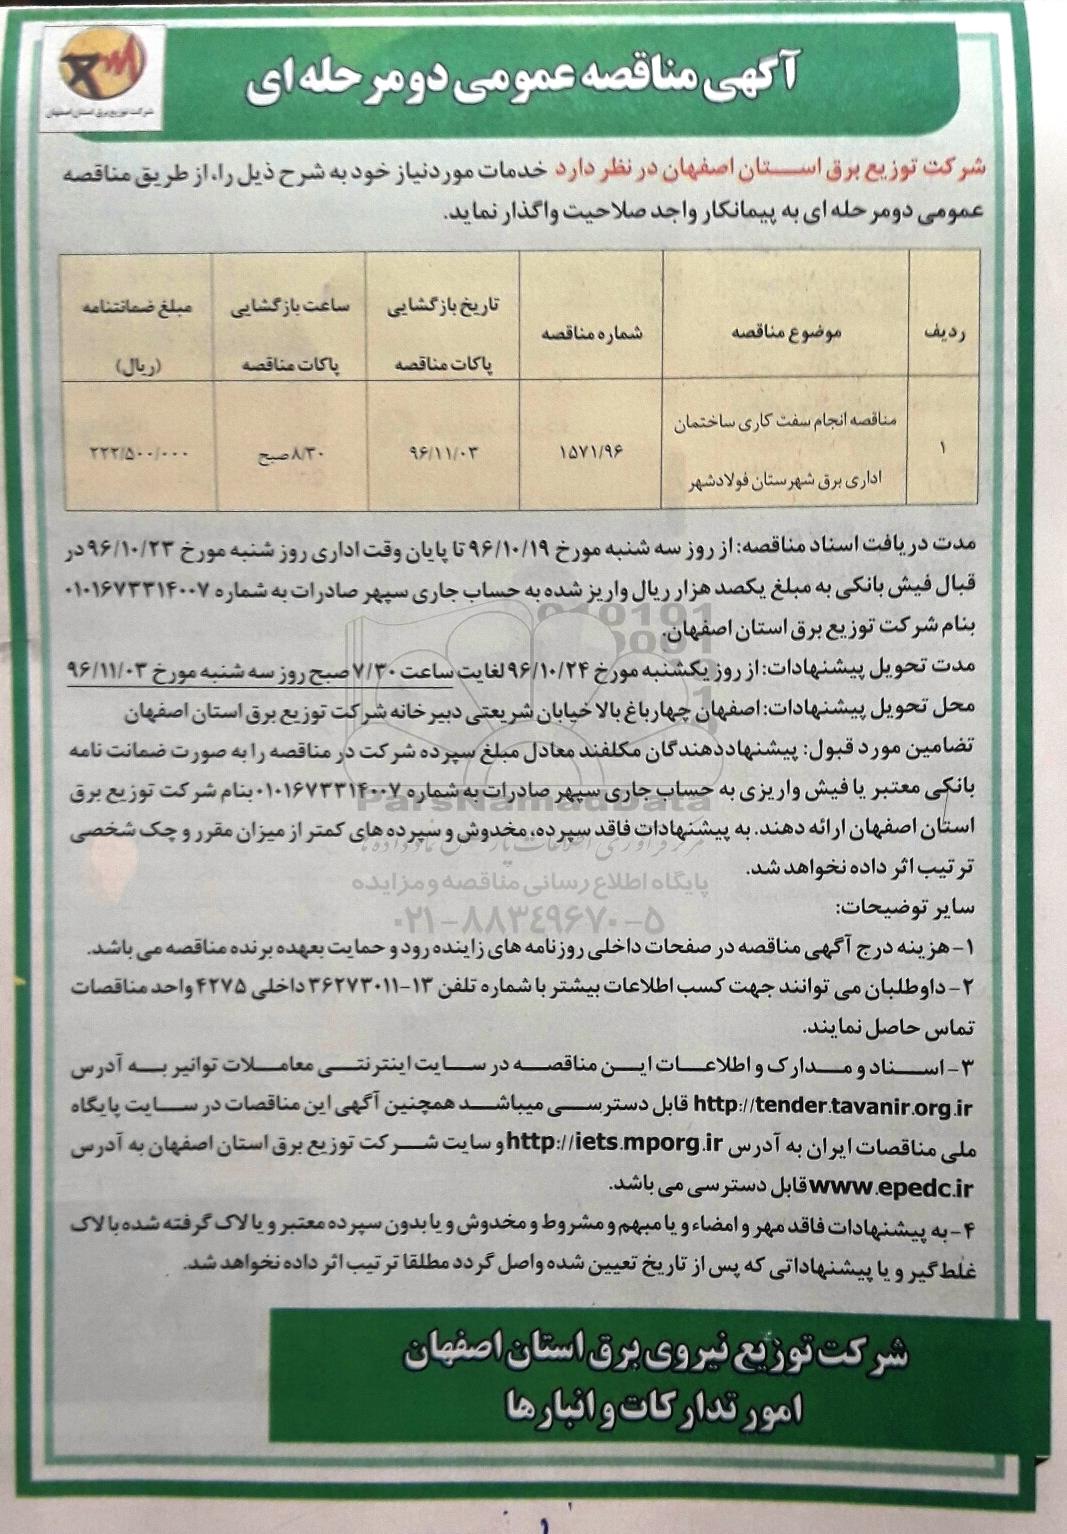 آگهی مناقصه عمومی دو مرحله ای
شرکت توزیع برق استان اصفهان
شرکت توزیع برق استان اصفهان در نظر دارد خدمات مورد نیاز خود به شرح ذیل را، از طریق مناقصه
عمومی دومرحله ای به پیمانکار واجد صلاحیت واگذار نماید.
ردیف
موضوع مناقصه
شماره مناقصه
تاریخ بازگشایی
پاکات مناقصه
ساعت بازگشایی
پاکات مناقصه
مبلغ ضمانتنامه
(ریال)
۱
مناقصه انجام سفت کاری ساختمان
اداری برق شهرستان فولادشهر
۱۵۷۱/۹۶
۹۶/۱۱/۰۳
۸/۳۰ صبح
۲۲۲/۵۰۰/۰۰۰
مدت دریافت اسناد مناقصه: از روز سه شنبه مورخ ۹۶/۱۰/۱۹ تا پایان وقت اداری روز شنبه مورخ ۹۶/۱۰/۲۳ در
قبال فیش بانکی به مبلغ یکصد هزار ریال واریز شده به حساب جاری سپهر صادرات به شماره ۰۱۰۱۶۷۳۳۱۴۰۰۷
بنام شرکت توزیع برق استان اصفهان.
مدت تحویل پیشنهادات: از روز یکشنبه مورخ ۹۶/۱۰/۲۴ لغایت ساعت ۷/۳۰ صبح روز سه شنبه مورخ ۹۶/۱۱/۰۳
محل تحویل پیشنهادات: اصفهان چهارباغ بالا خیابان شریعتی دبیرخانه شرکت توزیع برق استان اصفهان
تضامین مورد قبول: پیشنهاددهندگان مکلفند معادل مبلغ سپرده شرکت در مناقصه را به صورت ضمانت نامه
بانکی معتبر یا فیش واریزی به حساب جاری سپهر صادرات به شماره ۰۱۰۱۶۷۳۳۱۴۰۰۷ بنام شرکت توزیع برق
ParsNamadData
استان اصفهان ارائه دهند. به پیشنهادات فاقد سپرده، مخدوش و سپرده های کمتر از میزان مقرر و چک شخصی
مرکز فرآوری اطلاعات پارس نماد داده ها
ترتیب اثر داده نخواهد شد.
پایگاه اطلاع رسانی مناقصه و مزایده
سایر توضیحات:
۰۲۱-۸۸۳۴۹۶۷۰-۵
۱- هزینه درج آگهی مناقصه در صفحات داخلی روزنامه های زاینده رود و حمایت بعهده برنده مناقصه می باشد.
۲- داوطلبان می توانند جهت کسب اطلاعات بیشتر با شماره تلفن ۱۳-۳۶۲۷۳۰۱۱ داخلی ۴۲۷۵ واحد مناقصات
تماس حاصل نمایند.
۳- اسناد و مدارک و اطلاعات این مناقصه در سایت اینترنتی معاملات توانیر به آدرس
http://tender.tavanir.org.ir قابل دسترسی میباشد همچنین آگهی این مناقصات در سایت پایگاه
ملی مناقصات ایران به آدرس http://iets.mporg.ir و سایت شرکت توزیع برق استان اصفهان به آدرس
www.epedc.ir قابل دسترسی می باشد.
۴- به پیشنهادات فاقد مهر و امضاء و یا مبهم و مشروط و مخدوش و یا بدون سپرده معتبر و یا لاک گرفته شده با لاک
غلط گیر و یا پیشنهاداتی که پس از تاریخ تعیین شده واصل گردد مطلقا ترتیب اثر داده نخواهد شد.
شرکت توزیع نیروی برق استان اصفهان
امور تدارکات و انبارها